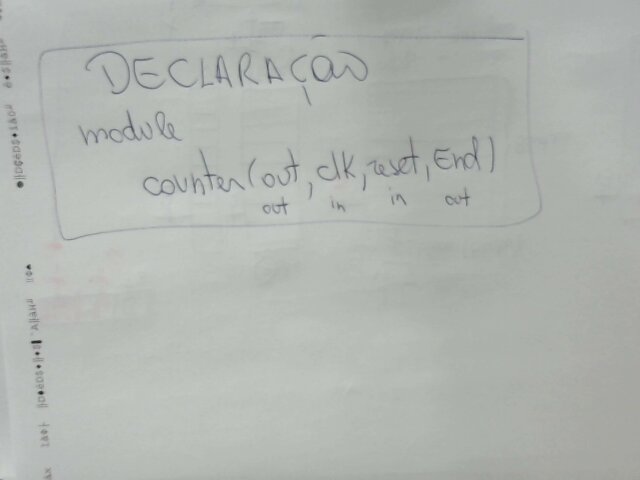 DECLARAÇÃO
module
counter(out, clk, reset, End)
out in in out